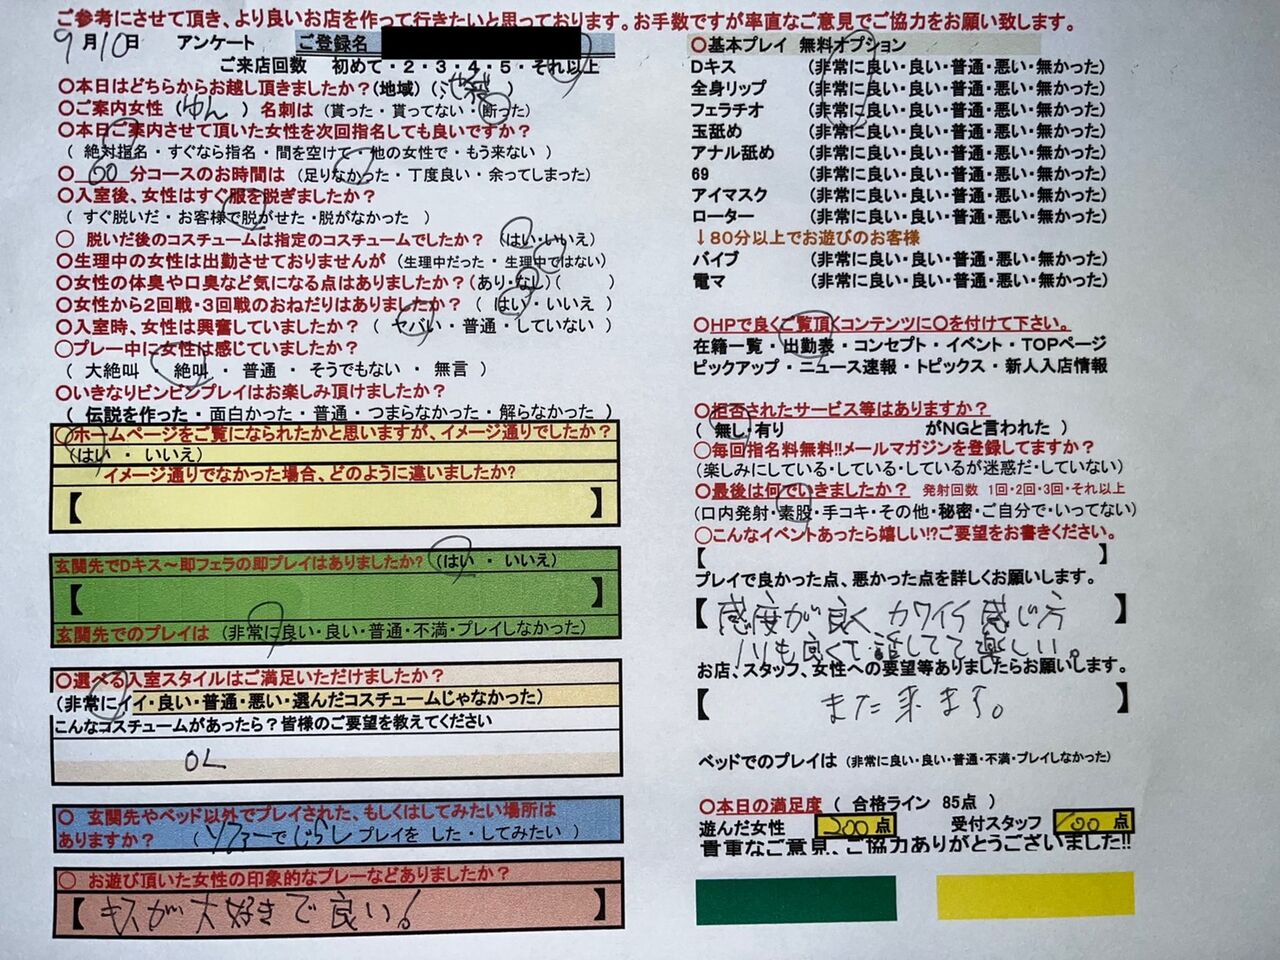 ご参考にさせて頂き、より良いお店を作って行きたいと思っております。お手数ですが率直なご意見でご協力をお願い致します。
9月10日 アンケート ご登録名
ご来店回数 初めて・2・3・4・5・それ以上
〇本日はどちらからお越し頂きましたか?(地域)( )
〇ご案内女性 (ゆん) 名刺は (貰った・貰ってない・断った)
〇本日ご案内させて頂いた女性を次回指名しても良いですか?
( 絶対指名・すぐなら指名・間を空けて・他の女性で・もう来ない )
〇 60 分コースのお時間は (足りなかった・丁度良い・余ってしまった)
〇入室後、女性はすぐ服を脱ぎましたか?
( すぐ脱いだ・お客様で脱がせた・脱がなかった )
〇 脱いだ後のコスチュームは指定のコスチュームでしたか? (はい・いいえ)
〇生理中の女性は出勤させておりませんが (生理中だった・生理中ではない)
〇女性の体臭や口臭など気になる点はありましたか?(あり・なし)( )
〇女性から2回戦・3回戦のおねだりはありましたか? ( はい・いいえ )
〇入室時、女性は興奮していましたか? ( ヤバい・普通・していない )
〇プレー中に女性は感じていましたか?
( 大絶叫 ・ 絶叫 ・ 普通 ・ そうでもない ・ 無言 )
〇いきなりビンビンプレイはお楽しみ頂けましたか?
( 伝説を作った・面白かった・普通・つまらなかった・解らなかった )
〇ホームページをご覧になられたかと思いますが、イメージ通りでしたか?
(はい ・ いいえ)
イメージ通りでなかった場合、どのように違いましたか?
【 】
玄関先でDキス～即フェラの即プレイはありましたか? (はい ・ いいえ)
【 】
玄関先でのプレイは (非常に良い・良い・普通・不満・プレイしなかった)
〇選べる入室スタイルはご満足いただけましたか?
(非常にイイ・良い・普通・悪い・選んだコスチュームじゃなかった)
こんなコスチュームがあったら?皆様のご要望を教えてください
OL
〇 玄関先やベッド以外でプレイされた、もしくはしてみたい場所は
ありますか? (ソファーでじらし プレイを した・してみたい )
〇 お遊び頂いた女性の印象的なプレーなどありましたか?
【 キスが大好きで良い! 】
〇基本プレイ 無料オプション
Dキス (非常に良い・良い・普通・悪い・無かった)
全身リップ (非常に良い・良い・普通・悪い・無かった)
フェラチオ (非常に良い・良い・普通・悪い・無かった)
玉舐め (非常に良い・良い・普通・悪い・無かった)
アナル舐め (非常に良い・良い・普通・悪い・無かった)
69 (非常に良い・良い・普通・悪い・無かった)
アイマスク (非常に良い・良い・普通・悪い・無かった)
ローター (非常に良い・良い・普通・悪い・無かった)
↓80分以上でお遊びのお客様
バイブ (非常に良い・良い・普通・悪い・無かった)
電マ (非常に良い・良い・普通・悪い・無かった)
〇HPで良くご覧頂くコンテンツに〇を付けて下さい。
在籍一覧・出勤表・コンセプト・イベント・TOPページ
ピックアップ・ニュース速報・トピックス・新人入店情報
〇拒否されたサービス等はありますか?
( 無し・有り がNGと言われた )
〇毎回指名料無料!!メールマガジンを登録してますか?
(楽しみにしている・している・しているが迷惑だ・していない)
〇最後は何でいきましたか? 発射回数 1回・2回・3回・それ以上
(口内発射・素股・手コキ・その他・秘密・ご自分で・いってない)
〇こんなイベントあったら嬉しい!?ご要望をお書きください。
【 】
プレイで良かった点、悪かった点を詳しくお願いします。
【 感度が良く カワイイ感じ方 】
ノリも良くて話してて楽しい。
お店、スタッフ、女性への要望等ありましたらお願いします。
【 また来ます。 】
ベッドでのプレイは (非常に良い・良い・普通・不満・プレイしなかった)
〇本日の満足度 ( 合格ライン 85点 )
遊んだ女性 200点 受付スタッフ 100点
貴重なご意見、ご協力ありがとうございました!!